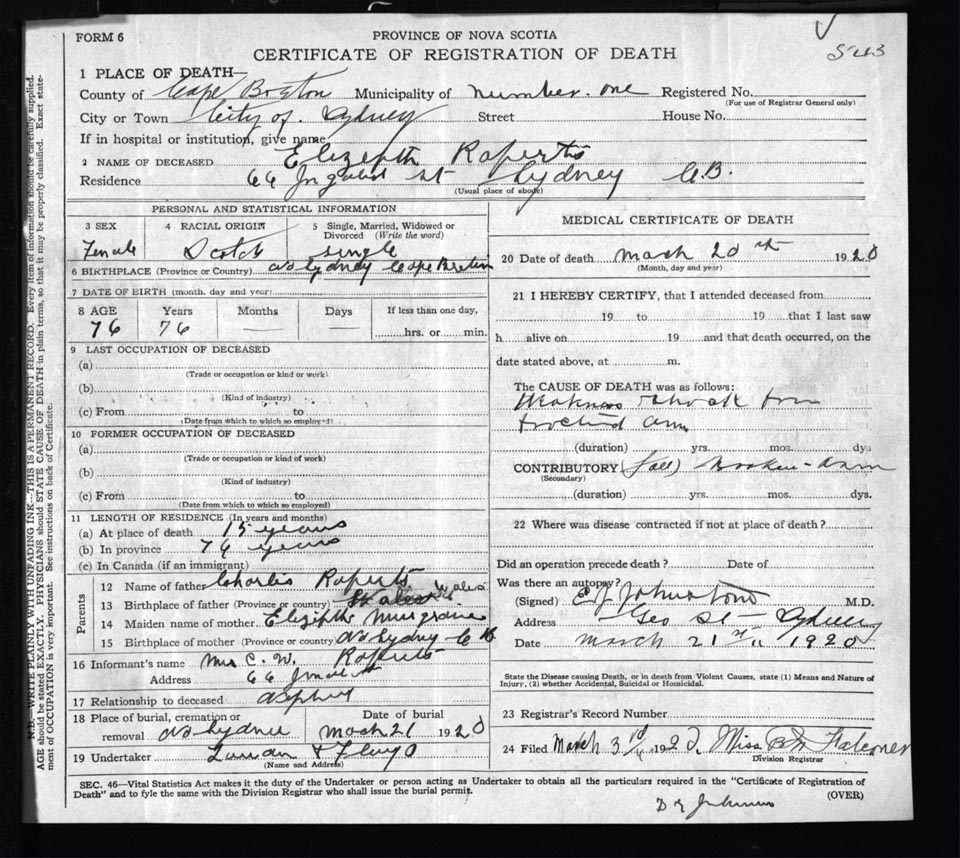 FORM 6
PROVINCE OF NOVA SCOTIA
CERTIFICATE OF REGISTRATION OF DEATH
543
1 PLACE OF DEATH—
County of Cape Breton Municipality of number. one Registered No.
(For use of Registrar General only)
City or Town City of. Sydney Street House No.
If in hospital or institution, give name
2 NAME OF DECEASED Elizepth Roperts
Residence 66 St Sydney C.B.
(Usual place of abode)
PERSONAL AND STATISTICAL INFORMATION
3 SEX 4 RACIAL ORIGIN 5 Single, Married, Widowed or Divorced (Write the word)
Female Scotch single
6 BIRTHPLACE (Province or Country) No Sydney Cape Breton
7 DATE OF BIRTH (month, day and year)
8 AGE Years Months Days If less than one day,
76 76 — — hrs. or min.
9 LAST OCCUPATION OF DECEASED
(a)
(Trade or occupation or kind or work)
(b)
(Kind of industry)
(c) From to
(Date from which to which so employed)
10 FORMER OCCUPATION OF DECEASED
(a)
(Trade or occupation or kind of work)
(b)
(Kind of industry)
(c) From to
(Date from which to which so employed)
11 LENGTH OF RESIDENCE (In years and months)
(a) At place of death 15 years
(b) In province 76 years
(c) In Canada (if an immigrant)
Parents
12 Name of father Charlis Roperts
13 Birthplace of father (Province or country) Wales
14 Maiden name of mother Elizipth Musgrave
15 Birthplace of mother (Province or country) No Sydney C B
16 Informant's name Mrs C. W. Roperts
Address 66
17 Relationship to deceased
18 Place of burial, cremation or removal No Sydney Date of burial Mach 21 1920
19 Undertaker
(Name and Address)
MEDICAL CERTIFICATE OF DEATH
20 Date of death mach 20 th 1920
(Month, day and year)
21 I HEREBY CERTIFY, that I attended deceased from
19 to 19 that I last saw
h alive on 19 and that death occurred, on the
date stated above, at m.
The CAUSE OF DEATH was as follows:
Weakness shock from
arm
(duration) yrs. mos. dys
CONTRIBUTORY (fall) Brooken-arm
(Secondary)
(duration) yrs. mos. dys.
22 Where was disease contracted if not at place of death?
Did an operation precede death? Date of
Was there an autopsy?
(Signed) E J Johnstone M.D.
Address Geo St - Sydney
Date March 21 st 1920
State the Disease causing Death, or in death from Violent Causes, state (1) Means and Nature of
Injury, (2) whether Accidental, Suicidal or Homicidal.
23 Registrar's Record Number
24 Filed March 1920 Miss Falconer
Division Registrar
SEC. 46—Vital Statistics Act makes it the duty of the Undertaker or person acting as Undertaker to obtain all the particulars required in the "Certificate of Registration of
Death" and to fyle the same with the Division Registrar who shall issue the burial permit.
(OVER)
N.B.—WRITE PLAINLY WITH UNFADING INK—THIS IS A PERMANENT RECORD. Every item of information should be carefully supplied.
AGE should be stated EXACTLY. PHYSICIANS should STATE CAUSE OF DEATH in plain terms, so that it may be properly classified. Exact state-
ment of OCCUPATION is very important. See instructions on back of Certificate.